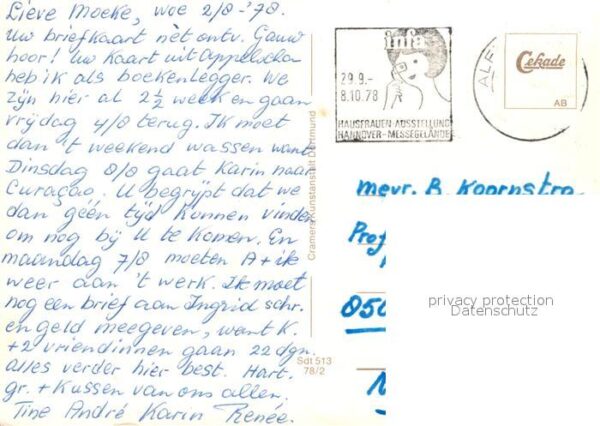 Lieve Moeke, woe 2/8-'78.
Uw briefkaart nèt ontv. Gauw
hoor! Uw kaart uit Appelscha
heb ik als boekenlegger. We
zijn hier al 2½ week en gaan
vrijdag 4/8 terug. Ik moet
dan 't weekend wassen want
Dinsdag 8/8 gaat Karin naar
Curaçao. U begrijpt dat we
dan géén tijd kunnen vinden
om nog bij U te komen. En
maandag 7/8 moeten A + ik
weer aan 't werk. Ik moet
nog een brief aan Ingrid schr.
en geld meegeven, want K.
+ 2 vriendinnen gaan 22 dgn.
Alles verder hier best. Hart.
gr. + kussen van ons allen.
Tine André Karin Renée.
infa
29.9.-
8.10.78
HAUSFRAUEN-AUSSTELLUNG
HANNOVER-MESSEGELÄNDE
ALF
Cekade
AB
Cramers Kunstanstalt Dortmund
Sdt 513
78/2
mevr. B. Koornstra
Prof
850
privacy protection
Datenschutz